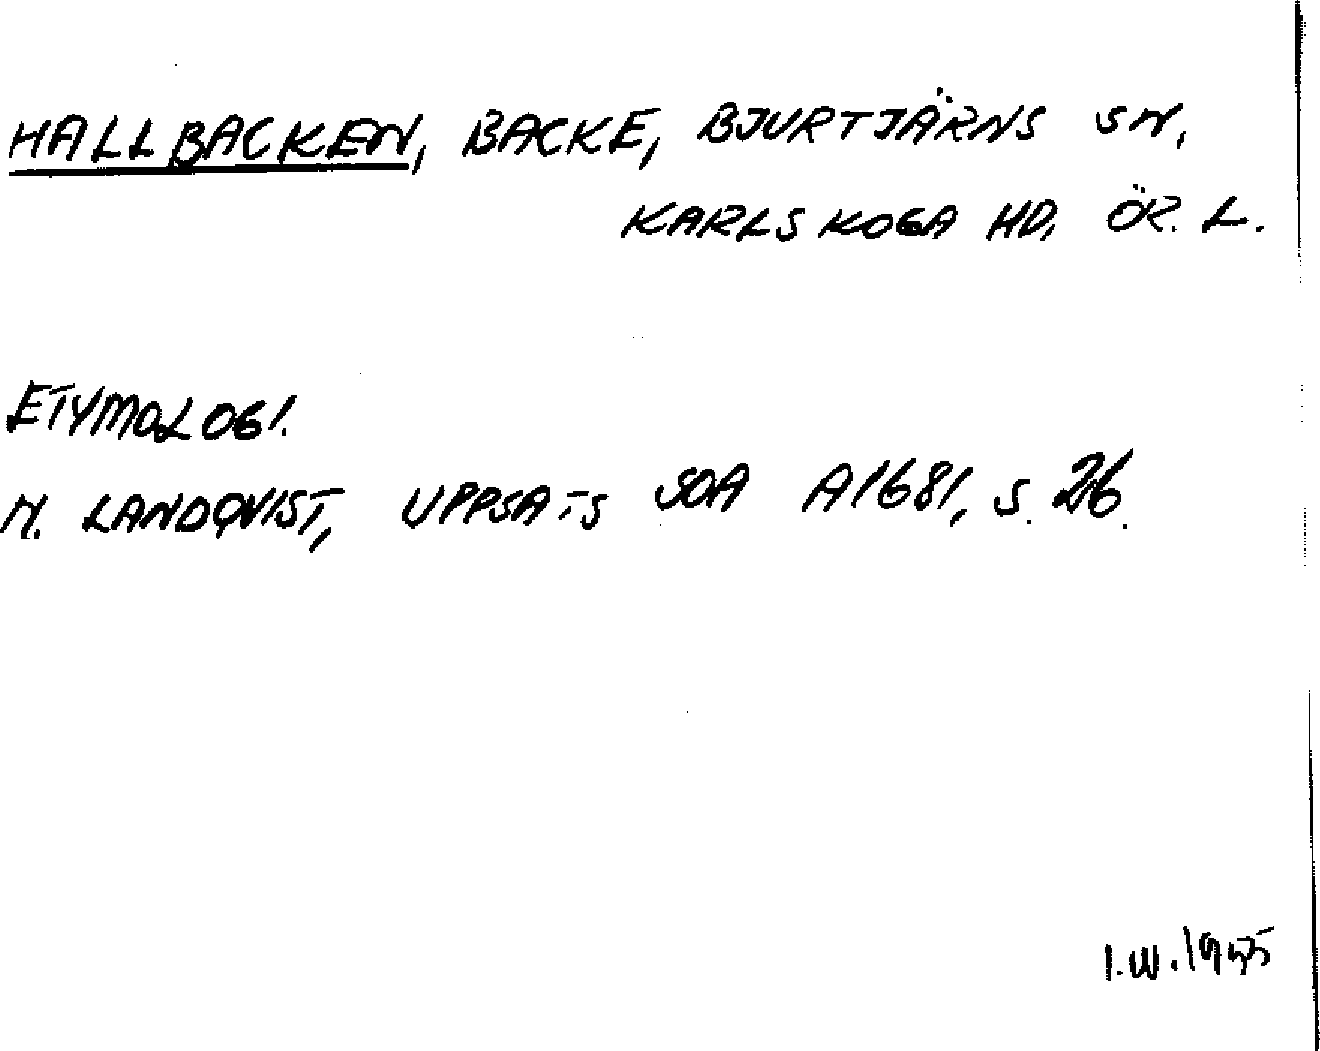 HALLBACKEN, BACKE, BJURTJÄRNS SN,
KARLSKOGA HD, ÖR. L.
ETYMOLOGI.
N. LANDQVIST, UPPSATS SOA A1681, S. 26.
I.W.1955